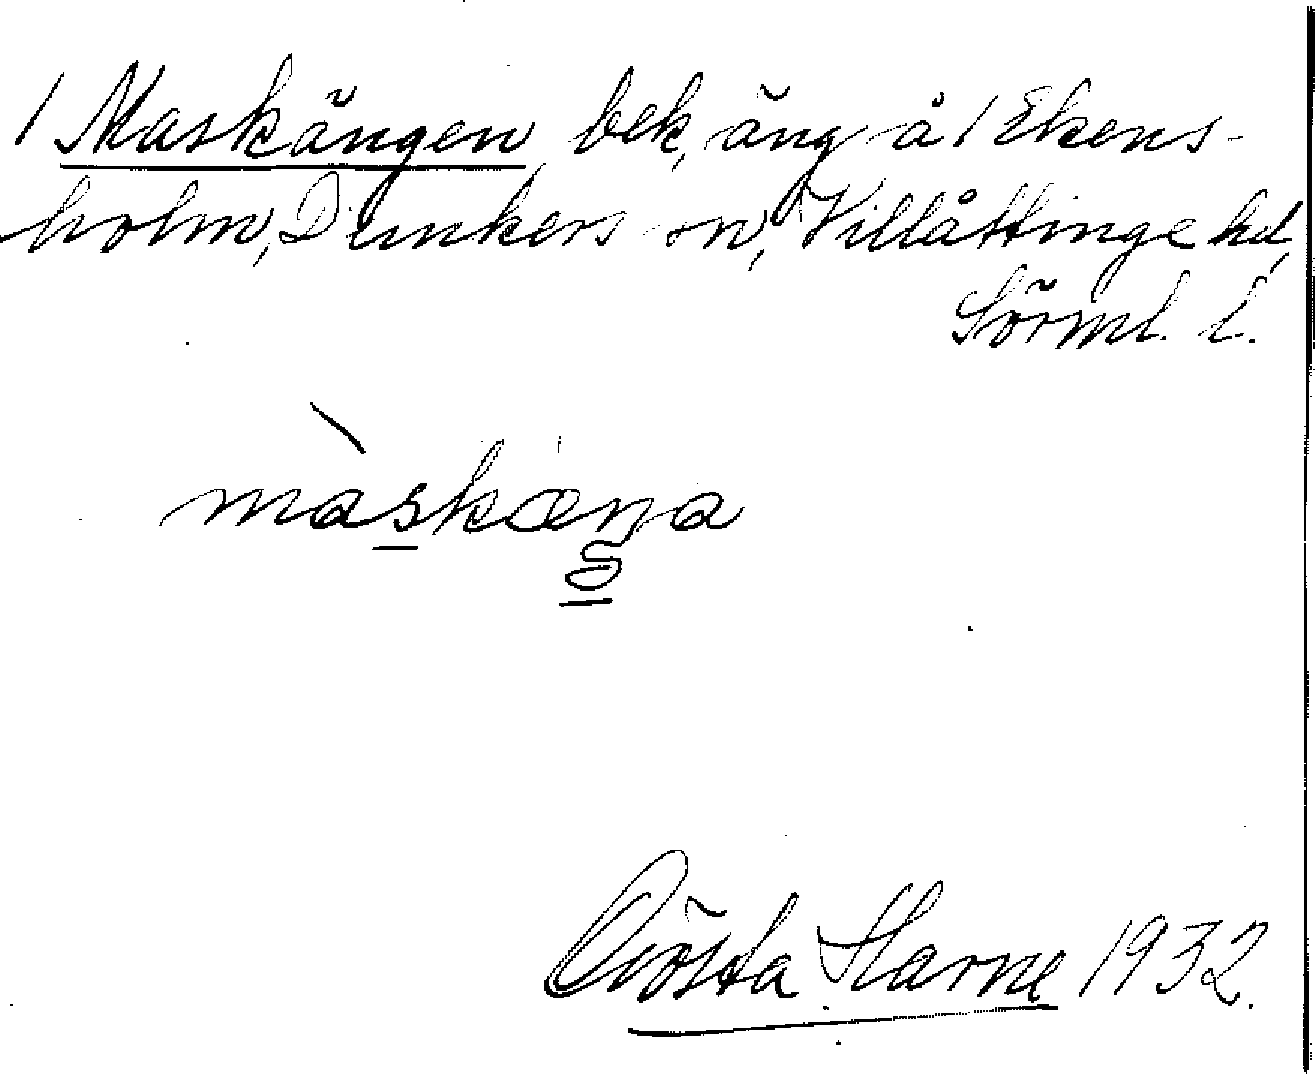 / Maskängen bek, äng å / Ekens-
holm, Dunkers sn, Villåttinge hd,
Sörml. l.
màskæŋa
Gösta 1932.